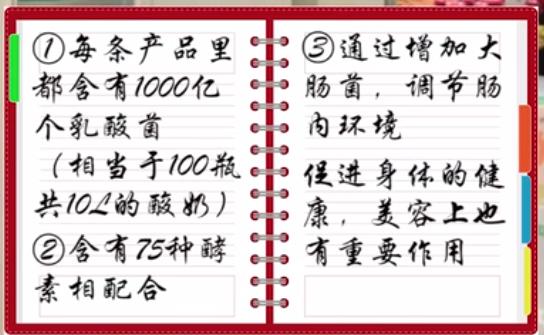 ①每条产品里
都含有1000亿
个乳酸菌
（相当于100瓶
共10L的酸奶）
②含有75种酵
素相配合
③通过增加大
肠菌，调节肠
内环境
促进身体的健
康，美容上也
有重要作用